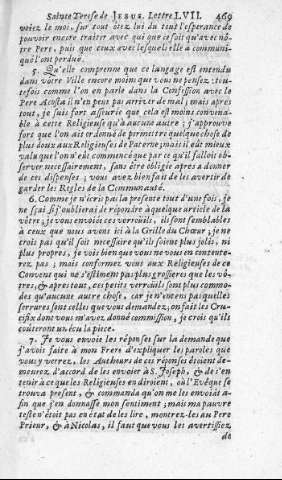 Sainte Terese de JESUS. Lettre LVII. 469
voiez le moi, sur tout ostez lui du tout l'esperance de
pouvoir encore traiter avec qui que ce soit qu'avec nô-
tre Pere, puis que ceux avec lesquels elle a communi-
qué l'ont perduë.
5. Qu'elle comprenne que ce langage est entendu
dans votre Ville encore moins que vous ne pensez; tou-
tefois comme l'on en parle dans la Confession avec le
Pere Acosta il n'en peut pas arriver de mal; mais aprés
tout, je suis fort assurée que cela est moins convena-
ble à cette Religieuse qu'à aucune autre; j'approuve
fort que l'on ait ordonné de permettre quelque chose de
plus doux aux Religieuses de Paterne; mais il eût mieux
valu que l'on n'eût commencé que par ce qu'il falloit ob-
server necessairement, sans être obligée aprés à donner
de ces dispenses; vous avez bien fait de les avertir de
garder les Regles de la Communauté.
6. Comme je n'écris pas la presente tout d'une fois, je
ne sçai si j'oublierai de répondre à quelque article de la
vôtre; je vous envoie ces verrouils, ils sont semblables
à ceux que nous avons ici à la Grille du Chœur, je ne
crois pas qu'il soit necessaire qu'ils soient plus jolis, ni
plus propres, je vois bien que vous ne vous en contente-
rez pas; mais conformez vous aux Religieuses de ce
Convent qui ne s'estiment pas plus grossieres que les vô-
tres, & aprés tout, ces petits verrouils sont plus commo-
des qu'aucune autre chose, car je n'entens pas quelles
serrures sont celles que vous demandez, on fait les Cru-
cifix dont vous m'avez donné commission, je crois qu'ils
coûteront un écu la piece.
7. Je vous envoie les réponses sur la demande que
j'avois faite à mon Frere d'expliquer les paroles que
vous y verrez, les Autheurs de ces réponses étoient de-
meurez d'accord de les envoier à S. Joseph, & de s'en
tenir à ce que les Religieuses en diroient, où l'Evêque se
trouva present, & commanda qu'on me les envoiât a-
fin que j'en donnasse mon sentiment; mais ma pauvre
teste n'étoit pas en état de les lire, montrez-les au Pere
Prieur, & à Nicolas, il faut que vous les avertissiez,
de